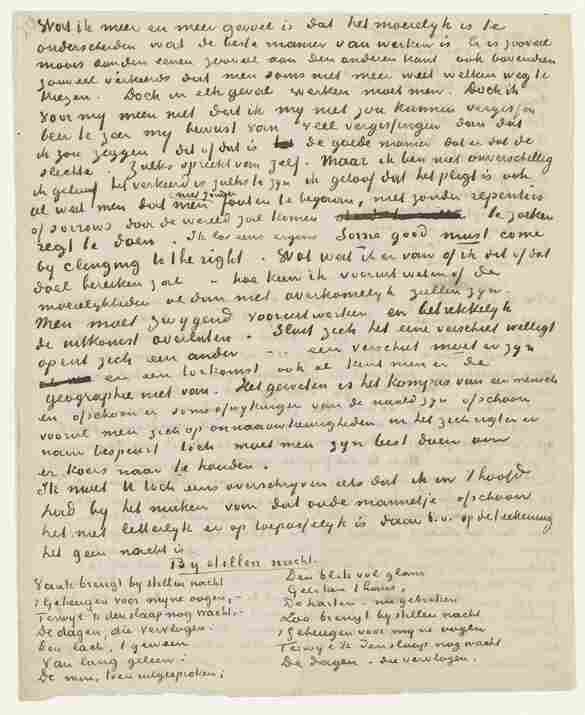 Wat ik meer en meer gevoel is dat het moeielyk is te
onderscheiden wat de beste manier van werken is. Er is zooveel
moois aan den eenen zooveel aan den anderen kant ook bovendien
zooveel verkeerds dat men soms niet meer weet welken weg te
kiezen. Doch in elk geval werken moet men. Doch ik
voor my meen niet dat ik my niet zou kunnen vergissen
ben te zeer my bewust van veel vergissingen dan dat
ik zou zeggen dit of dat is de goede manier dat en dat de
slechte. Zulks spreekt van zelf. Maar ik ben niet onverschillig
ik geloof het verkeerd is zulks te zyn ik geloof dat het pligt is ook
al weet men dat men niet zonder fouten te begaan, niet zonder repenties
of sorrows door de wereld zal komen te zoeken
regt te doen. Ik las eens ergens Some good must come
by clinging to the right. Wat weet ik er van of ik dit of dat
doel bereiken zal - hoe kan ik vooruit weten of de
moeielykheden al dan niet overkomelyk zullen zyn.
Men moet zwygend voortwerken en betrekkelyk
de uitkomst overlaten. Sluit zich het eene verschiet welligt
opent zich een ander - een verschiet moet er zyn
en een toekomst ook al kent men er de
geographie niet van. Het geweten is het kompas van een mensch
en ofschoon er soms afwykingen van de naald zyn ofschoon
vooral men zich op onnaauwkeurigheden in het zich rigten er
naar bespeurt toch moet men zyn best doen om
er koers naar te houden.
Ik moet U toch eens overschryven iets dat ik in 't hoofd
had by het maken van dat oude mannetje ofschoon
het niet letterlyk er op toepasselyk is daar b.v. op de teekening
het geen nacht is
By stillen nacht.
Vaak brengt by stillen nacht
't Geheugen voor myne oogen, -
Terwyl 'k den slaap nog wacht. -
De dagen, die vervlogen.
Den lach, 't geween
Van lang geleen;
De min, toen uitgesproken;
Den blik vol glans
Geweken thans,
De harten - nu gebroken
Zoo brengt by stillen nacht
't Geheugen voor myne oogen
Terwyl 'k den slaap nog wacht
De dagen - die vervlogen.